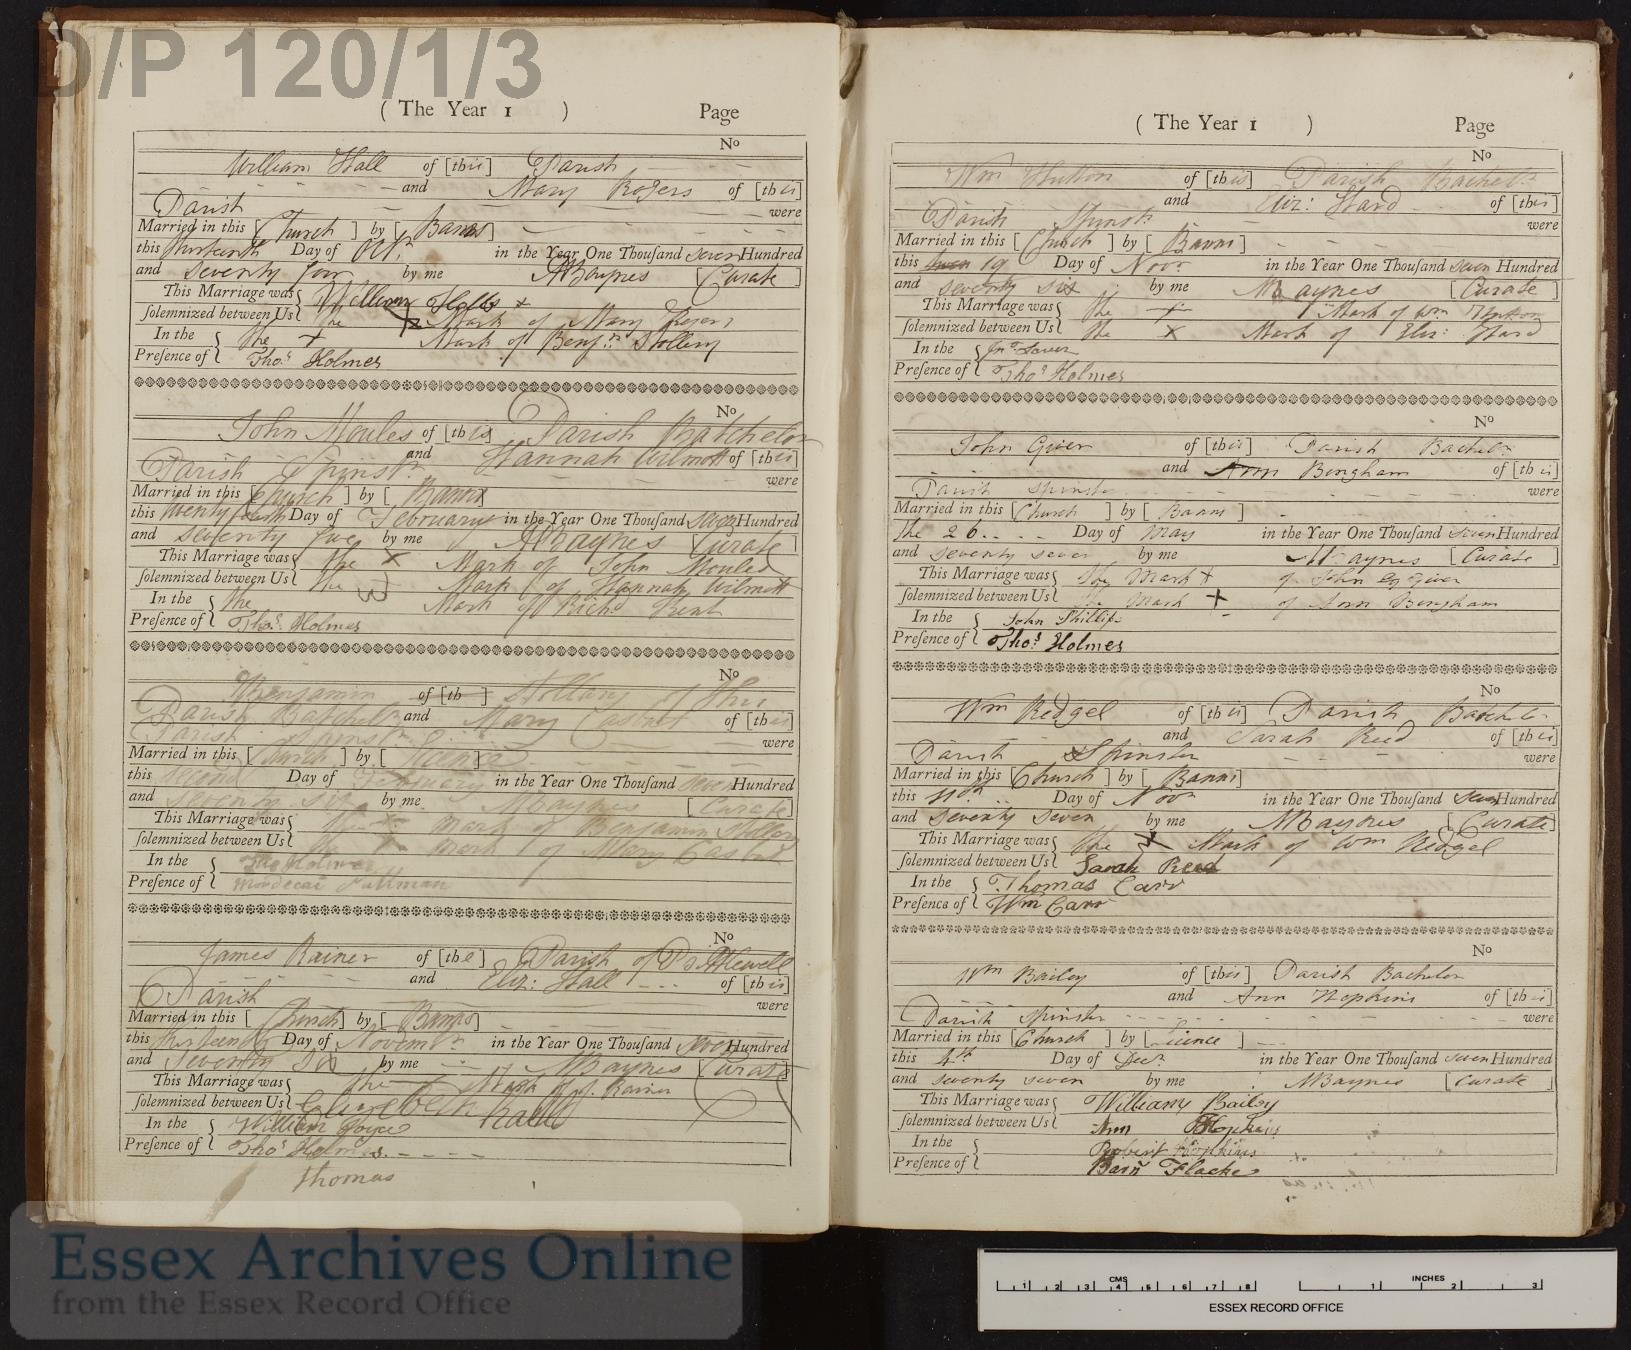 D/P 120/1/3
( The Year 1 ) Page
No
William Hall of [this] Parish
and Mary Rogers of [this]
Parish were
Married in this [Church] by [Banns]
this thirteenth Day of Octr. in the Year One Thousand seven Hundred
and seventy four by me ABaynes [Curate]
This Marriage was William Halls x
solemnized between Us the x Mark of Mary Rogers
In the the + Mark of Benjn. Stollery
Presence of Thos. Holmes
No
John Moules of [this] Parish Batchelor
and Hannah Wilmott of [this]
Parish Spinstr. were
Married in this [Church] by [Banns]
this twenty Day of February in the Year One Thousand seven Hundred
and seventy five by me ABaynes [Curate]
This Marriage was the x Mark of John Moules
solemnized between Us the Mark of Hannah Wilmott
In the the Mark of Richd
Presence of Thos. Holmes
No
Benjamin of [th ] Stollery of this
Parish Batchelr and Mary Casbolt of [this]
Parish Spinstr. were
Married in this [Church] by [Licence]
this second Day of February in the Year One Thousand seven Hundred
and seventy six by me ABaynes [Curate]
This Marriage was the x mark of Benjamin Stollery
solemnized between Us the x mark of Mary
In the Tho Holmes
Presence of Mordecai Pullman
No
James Rainer of [the] Parish of Prittlewell
and Eliz: Hall of [this]
Parish were
Married in this [Church] by [Banns]
this thirteenth Day of Novembr. in the Year One Thousand seven Hundred
and seventy six by me ABaynes [Curate]
This Marriage was the + Mark of J. Rainer
solemnized between Us Elizebeth
In the William Joyce
Presence of Thos Holmes
Thomas
( The Year 1 ) Page
No
Wm Hutton of [this] Parish Bachelr
and Eliz: Hard of [this]
Parish Spinstr. were
Married in this [Church] by [Banns]
this 19 Day of Novr. in the Year One Thousand seven Hundred
and seventy six by me ABaynes [Curate]
This Marriage was the + Mark of Wm Hutton
solemnized between Us the x Mark of Eliz: Hard
In the Jno
Presence of Thos Holmes
No
John Giver of [this] Parish Bachelor
and Ann Bingham of [this]
Parish Spinster were
Married in this [Church] by [Banns]
the 26 Day of May in the Year One Thousand seven Hundred
and seventy seven by me ABaynes [Curate]
This Marriage was the Mark + of John Giver
solemnized between Us the Mark + of Ann Bingham
In the John Phillips
Presence of Thos. Holmes
No
Wm Redgel of [this] Parish Batchelr
and Sarah Reed of [this]
Parish Spinster were
Married in this [Church] by [Banns]
this 11th Day of Novr in the Year One Thousand seven Hundred
and seventy seven by me ABaynes [Curate]
This Marriage was the x Mark of Wm Redgel
solemnized between Us Sarah Reed
In the Thomas Carr
Presence of Wm Carr
No
Wm Bailey of [this] Parish Bachelor
and Ann Hopkins of [this]
Parish Spinster were
Married in this [Church] by [Licence]
this 4th Day of Decr. in the Year One Thousand seven Hundred
and seventy seven by me ABaynes [Curate]
This Marriage was William Bailey
solemnized between Us Ann Hopkins
In the Robert Hopkins
Presence of Barn Flacke
Essex Archives Online
from the Essex Record Office
CMS
1 2 3 4 5 6 7 8
INCHES
1 2 3
ESSEX RECORD OFFICE